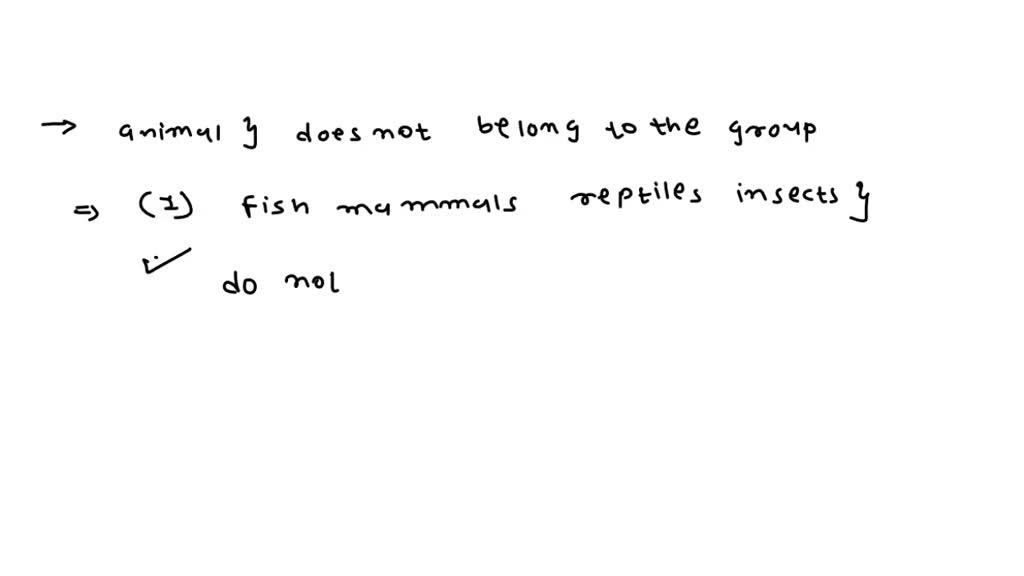 → animal } does not belong to the group
⇒ (1) fish mammals reptiles insects }
do not